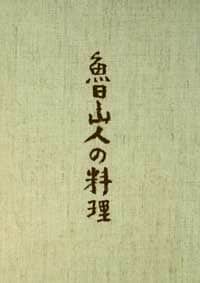 魯山人の料理